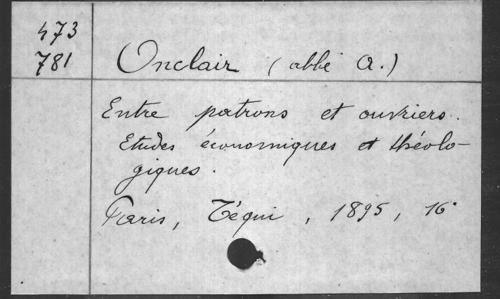 473
781
Onclair (abbé A.)
Entre patrons et ouvriers.
Etudes économiques et théolo-
giques.
Paris, Téqui, 1895, 16°